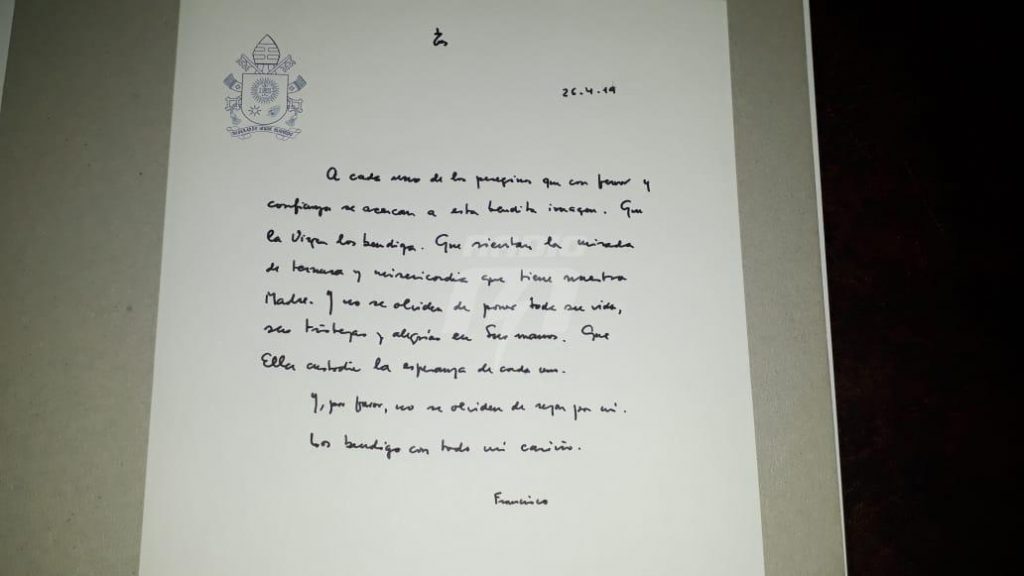 26.4.19
A cada uno de los peregrinos que con fervor y
confianza se acercan a esta bendita imagen. Que
la Virgen los bendiga. Que sientan la mirada
de ternura y misericordia que tiene nuestra
Madre. Y no se olviden de poner toda su vida,
sus tristezas y alegrías en Sus manos. Que
Ella custodie la esperanza de cada uno.
Y, por favor, no se olviden de rezar por mí.
Los bendigo con todo mi cariño.
Francisco
RADIO